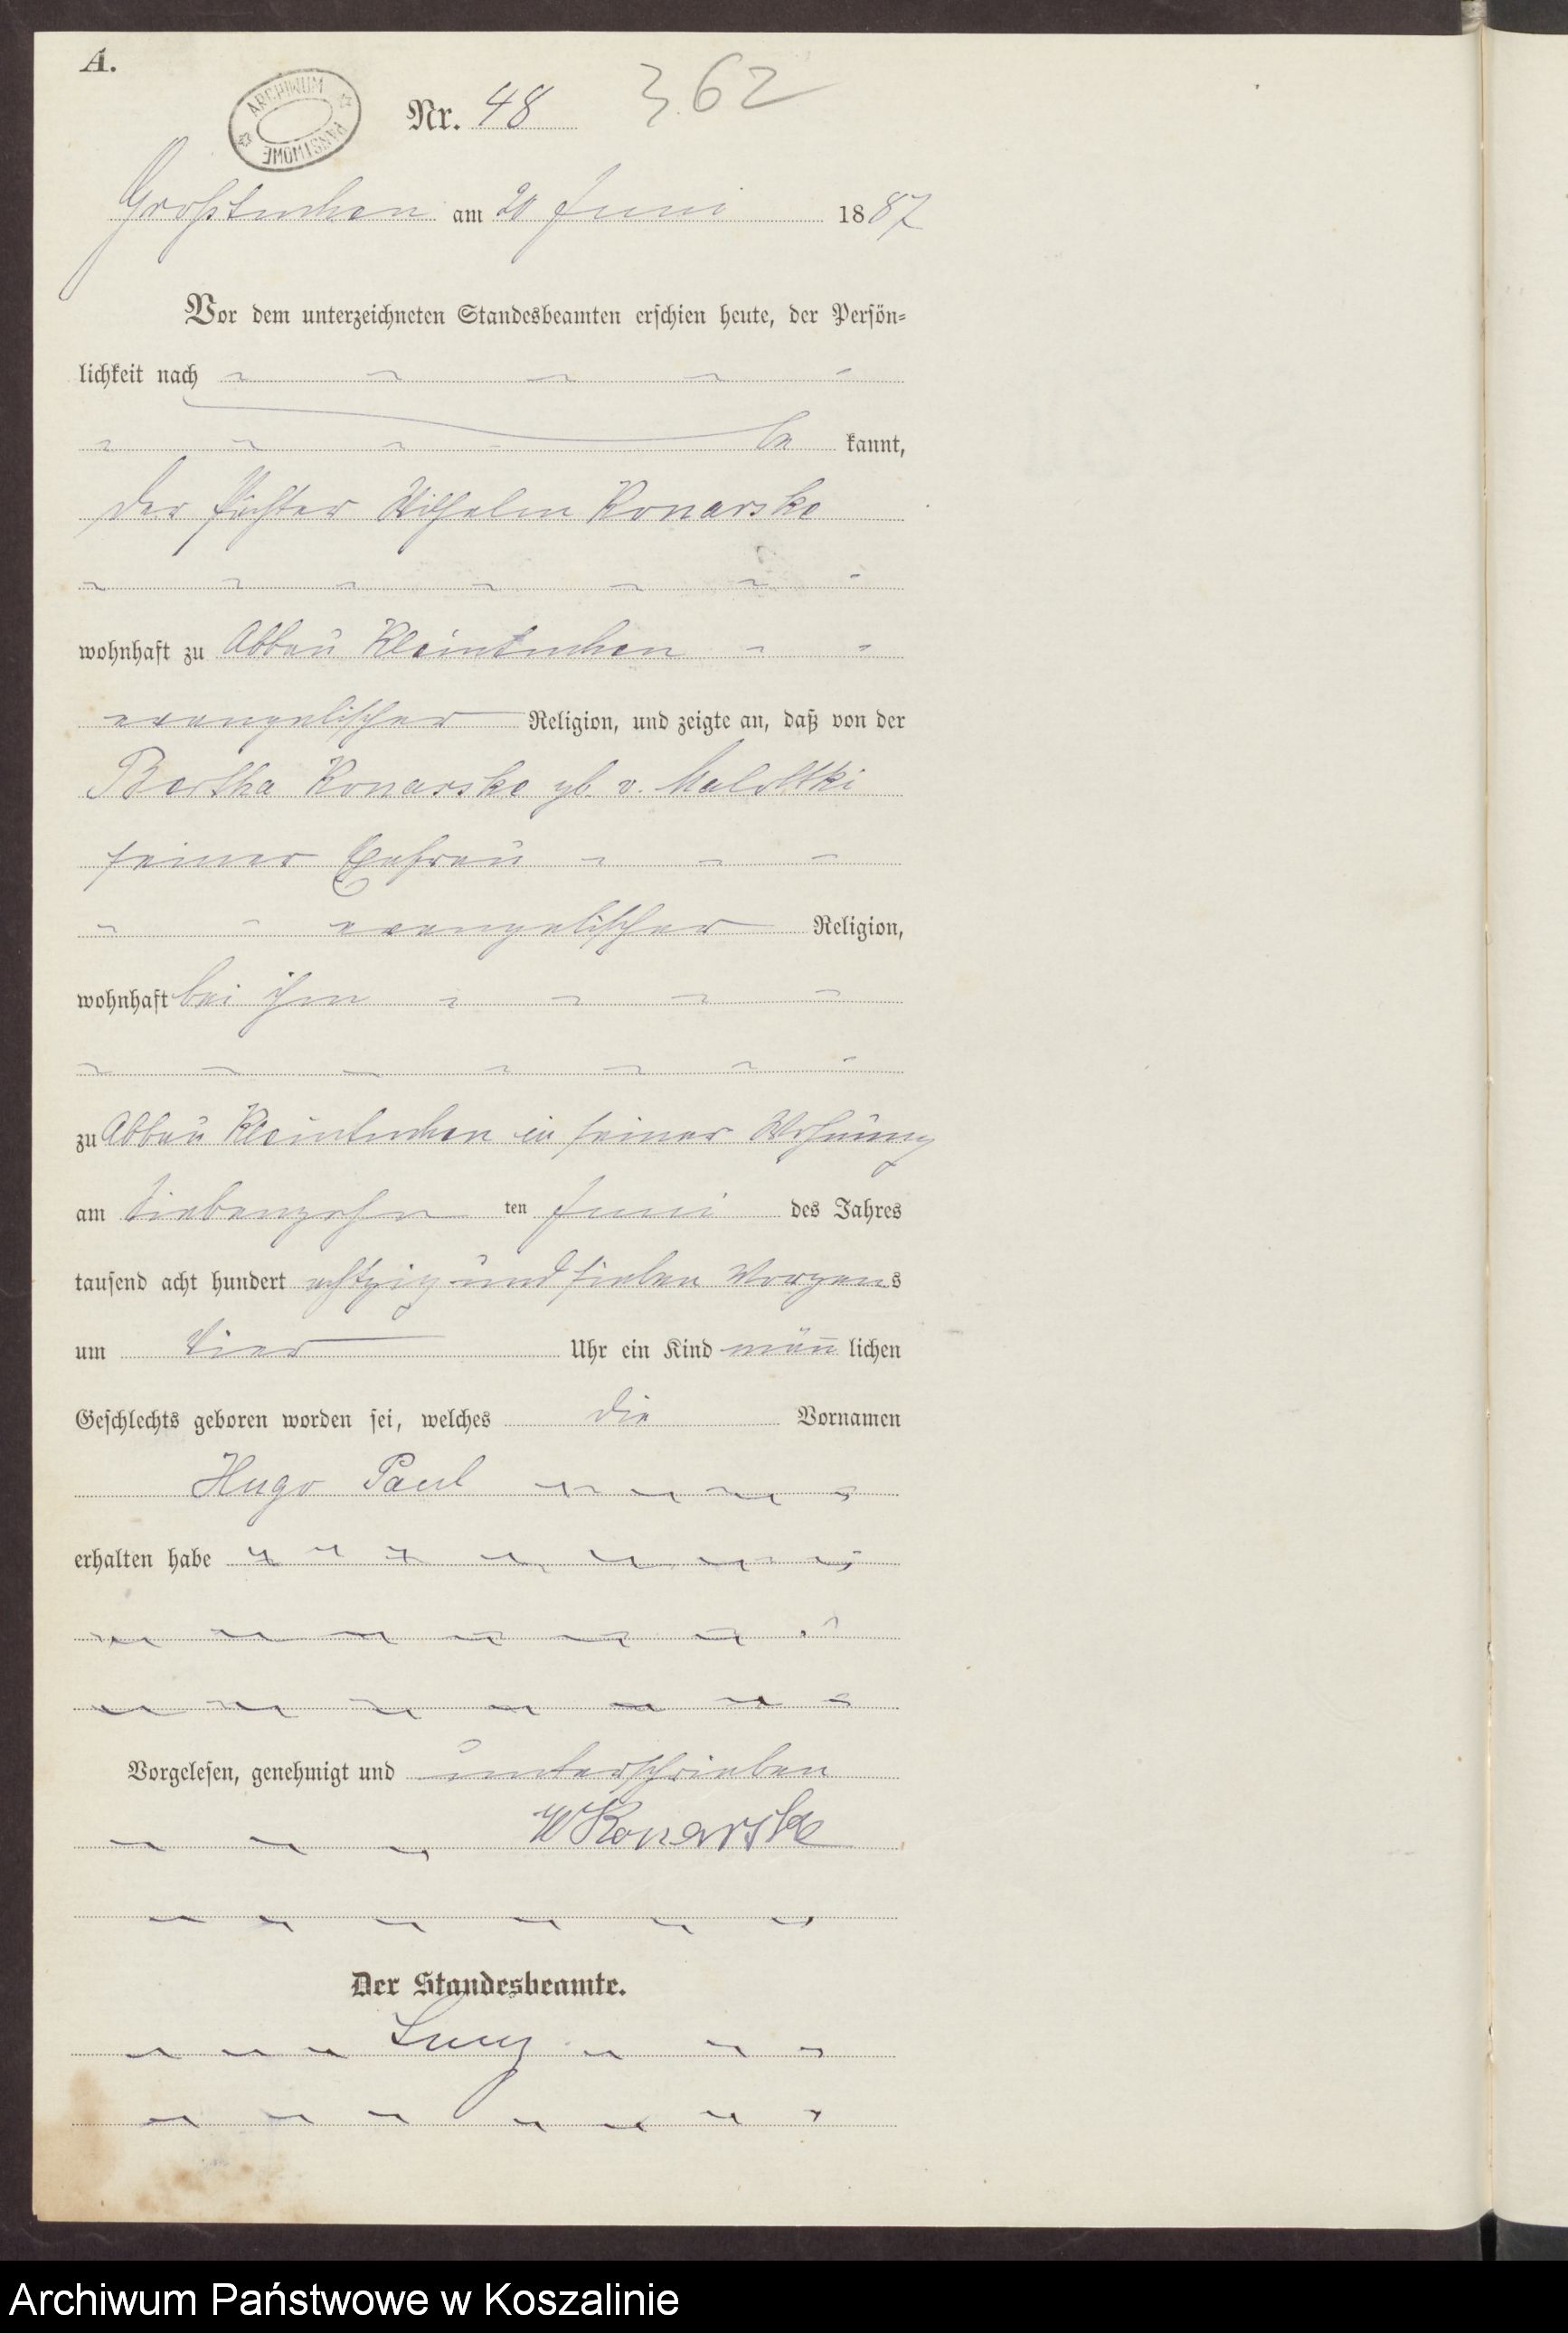 A.
ARCHIWUM PAŃSTWOWE
Nr. 48 362
Großtuchen am 20 Juni 1887
Vor dem unterzeichneten Standesbeamten erschien heute, der Persön-
lichkeit nach
be kannt,
der Pächter Wilhelm Konarske
wohnhaft zu Abbau Kleintuchen
evangelischer Religion, und zeigte an, daß von der
Bertha Konarske gb. v. Malottki
seiner Ehefrau
evangelischer Religion,
wohnhaft bei ihm
zu Abbau Kleintuchen in seiner Wohnung
am siebenzehn ten Juni des Jahres
tausend acht hundert achtzig und sieben Morgens
um vier Uhr ein Kind männ lichen
Geschlechts geboren worden sei, welches die Vornamen
Hugo Paul
erhalten habe
Vorgelesen, genehmigt und unterschrieben
W Konarske
Der Standesbeamte.
Archiwum Państwowe w Koszalinie